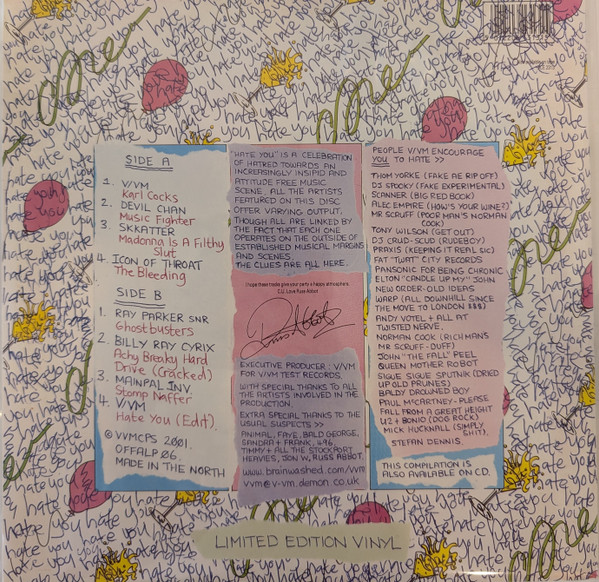 SIDE A
1. V/VM
Karl Cocks
2. DEVIL CHAN
Music Fighter
3. SKKATTER
Madonna Is A Filthy
Slut
4. ICON OF THROAT
The Bleeding
SIDE B
1. RAY PARKER SNR
Ghostbusters
2. BILLY RAY CYRIX
Achy Breaky Hard
Drive (Cracked)
3. MAINPAL INV
Stomp Naffer
4. V/VM
Hate You (Edit).
© VVMCPS 2001.
OFFALP 06.
MADE IN THE NORTH
"HATE YOU" IS A CELEBRATION
OF HATRED TOWARDS AN
INCREASINGLY INSIPID AND
ATTITUDE FREE MUSIC
SCENE. ALL THE ARTISTS
FEATURED ON THIS DISC
OFFER VARYING OUTPUT,
THOUGH ALL ARE LINKED BY
THE FACT THAT EACH ONE
OPERATES ON THE OUTSIDE OF
ESTABLISHED MUSICAL MARGINS
AND SCENES.
THE CLUES ARE ALL HERE.
I hope these tracks give your party a happy atmosphere.
C.U. Love Russ Abbot
Russ Abbot
EXECUTIVE PRODUCER : V/VM
FOR V/VM TEST RECORDS.
WITH SPECIAL THANKS TO ALL
THE ARTISTS INVOLVED IN THE
PRODUCTION.
EXTRA SPECIAL THANKS TO THE
USUAL SUSPECTS >>
ANIMAL, FAYE, BALD GEORGE,
SANDRA + FRANK, #96,
TIMMY + ALL THE STOCKPORT
HEAVIES, JON W, RUSS ABBOT.
www.brainwashed.com/vvm
vvm@v-vm.demon.co.uk
PEOPLE V/VM ENCOURAGE
YOU TO HATE >>
THOM YORKE (FAKE AE RIP OFF)
DJ SPOOKY (FAKE EXPERIMENTAL)
SCANNER (BIG RED BOOK)
ALEC EMPIRE (HOW'S YOUR WINE?)
MR SCRUFF (POOR MAN'S NORMAN
COOK)
TONY WILSON (GET OUT)
DJ CRUD-SCUD (RUDEBOY)
PRAXIS (KEEPING IT REAL SIC)
FAT "TWAT" CITY RECORDS
PANSONIC FOR BEING CHRONIC
ELTON "CANDLE UP MY" JOHN
NEW ORDER - OLD IDEAS
WARP (ALL DOWNHILL SINCE
THE MOVE TO LONDON $$$)
ANDY VOTEL + ALL AT
TWISTED NERVE.
NORMAN COOK (RICH MAN'S
MR SCRUFF - DUFF)
JOHN "THE FALL" PEEL
QUEEN MOTHER ROBOT
SIGUE SIGUE SPUTNIK (DRIED
UP OLD PRUNES)
BADLY DROWNED BOY
PAUL McARTNEY - PLEASE
FALL FROM A GREAT HEIGHT
U2 + BONIO (DOG ROCK)
MICK HUCKNALL (SIMPLY
SHIT).
STEFAN DENNIS.
THIS COMPILATION IS
ALSO AVAILABLE ON CD.
LIMITED EDITION VINYL